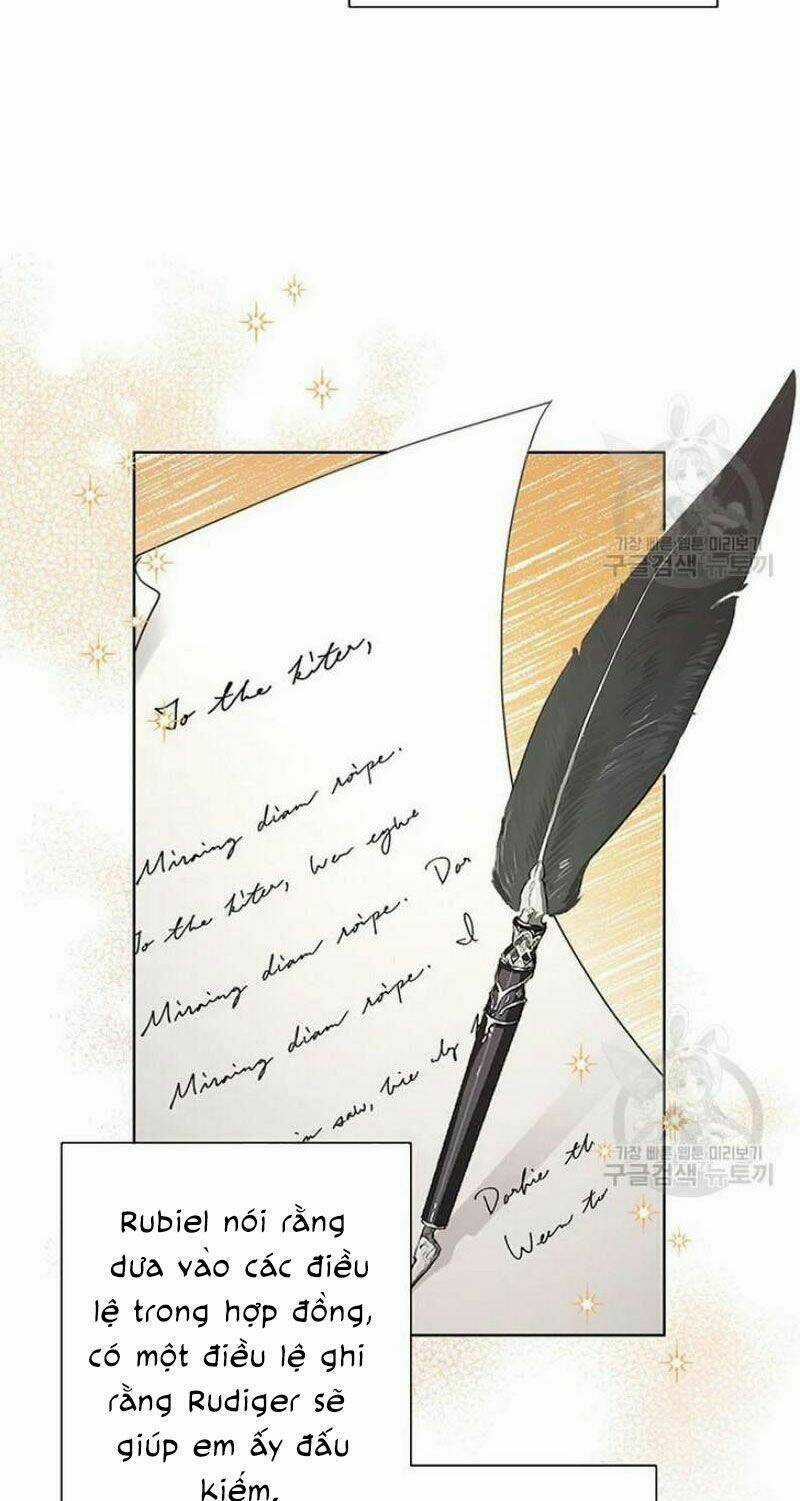 가장 빠른 웹툰 미리보기
구글검색 뉴토끼
To the kiter,
Miraing dian roipe.
To the kiter, Wen eghe
Miraing dian roipe. Dor
Miraing dian roipe. I
saw, bie dy
Dorhie th
Ween tu
가장 빠른 웹툰 미리보기
구글검색 뉴토끼
Rubiel nói rằng
dưa vào các điều
lệ trong hợp đồng,
có một điều lệ ghi
rằng Rudiger sẽ
giúp em ấy đấu
kiếm.